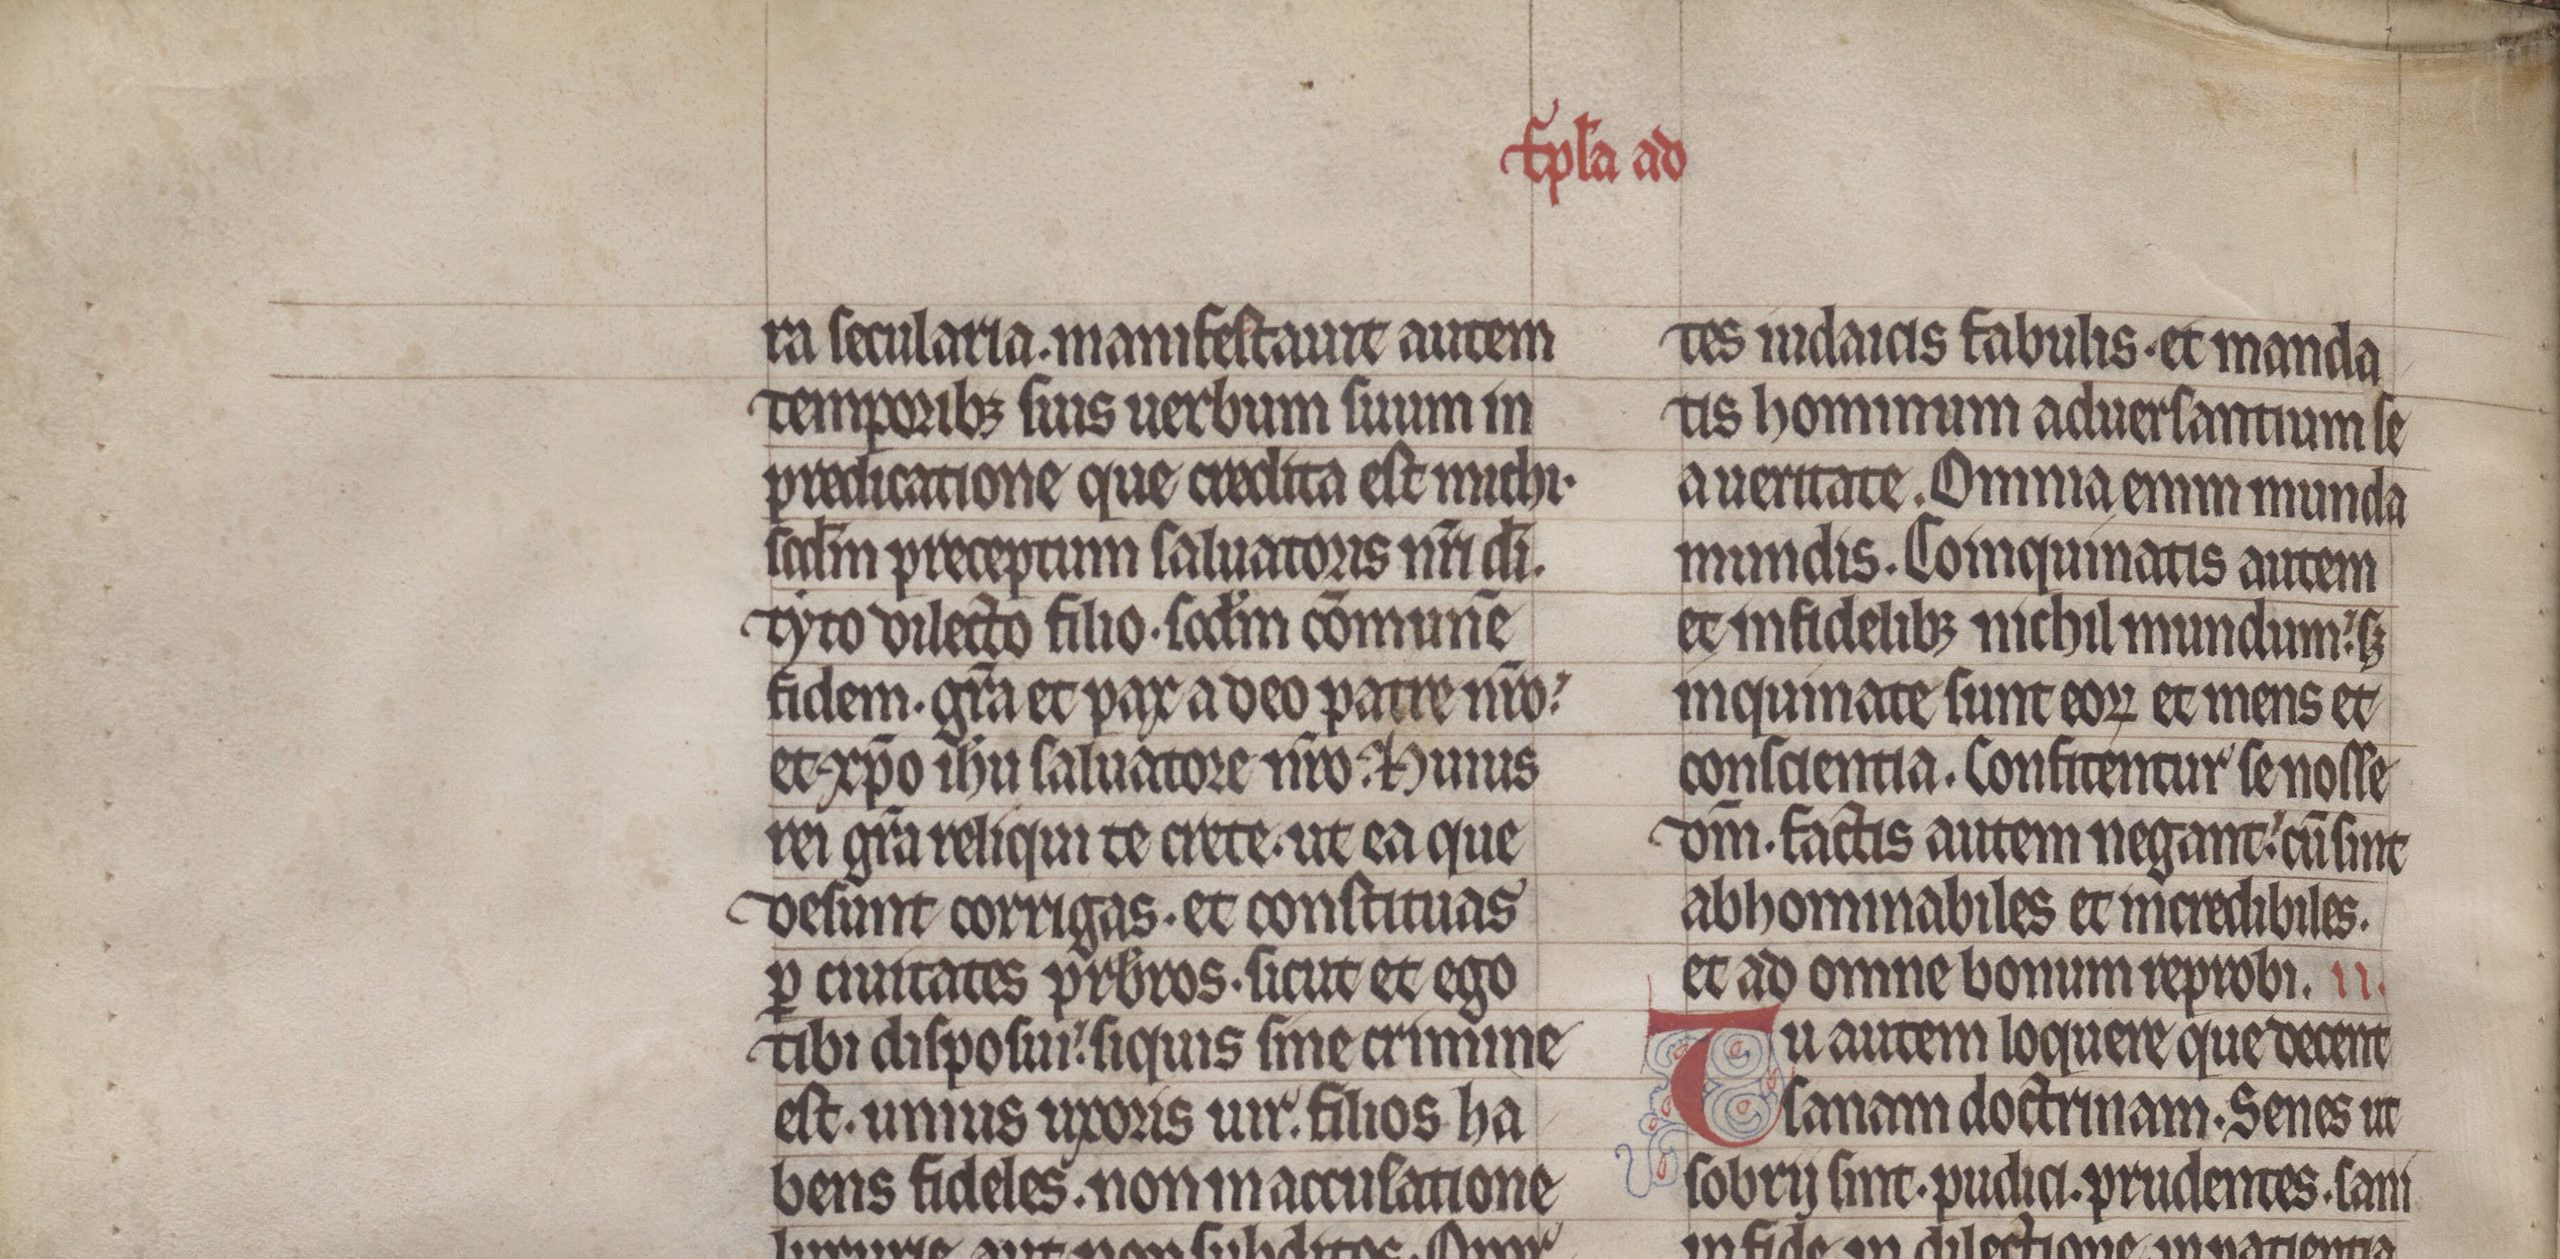 Ep̄la ad
ra secularia. manifestauit autem
temporibꝫ suis uerbum suum in
predicatione que credita est michi.
scd̄m preceptum saluatoris nr̄i dī.
tyto dilecto filio. scd̄m cōmunē
fidem. gr̄a et pax a deo patre nr̄o:
et xp̄o ih̄u saluatore nr̄o. Huius
rei gr̄a reliqui te crete. ut ea que
desunt corrigas. et constituas
ꝑ ciuitates pr̄bros. sicut et ego
tibi disposui: siquis sine crimine
est. unius uxoris uir. filios ha
bens fideles. non in accusatione
luxurie. aut non subditos. Opor
tes iudaicis fabulis. et manda
tis hominum aduersantium se
a ueritate. Omnia enim munda
mundis. Coinquinatis autem
et infidelibꝫ nichil mundum: sꝫ
inquinate sunt eoꝝ et mens et
conscientia. Confitentur se nosse
dm̄. factis autem negant: cū sint
abhominabiles et incredibiles.
et ad omne bonum reprobi. ıı.
Tu autem loquere que decent
sanam doctrinam. Senes ut
sobrij sint. pudici. prudentes. sani
in fide in dilectione in patientia